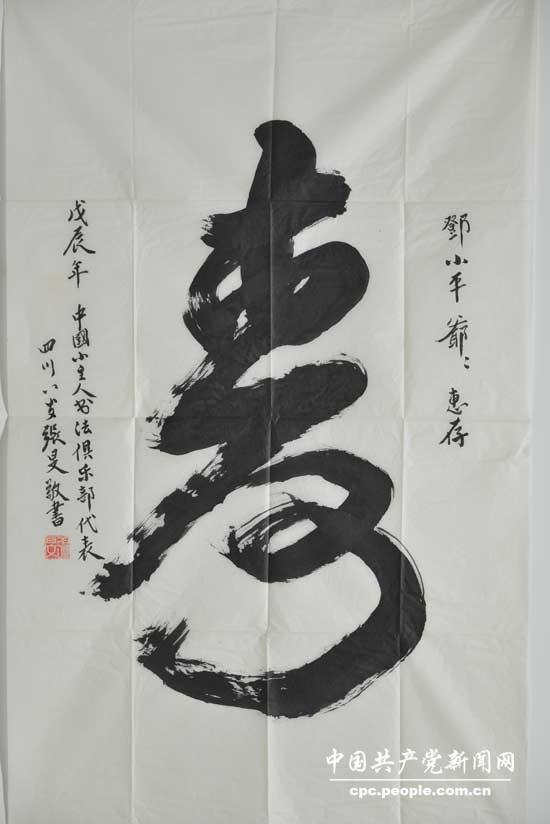 鄧小平爺〻惠存
壽
戊辰年 中國小主人书法俱乐部代表
四川八岁張旻敬書
中国共产党新闻网
cpc.people.com.cn